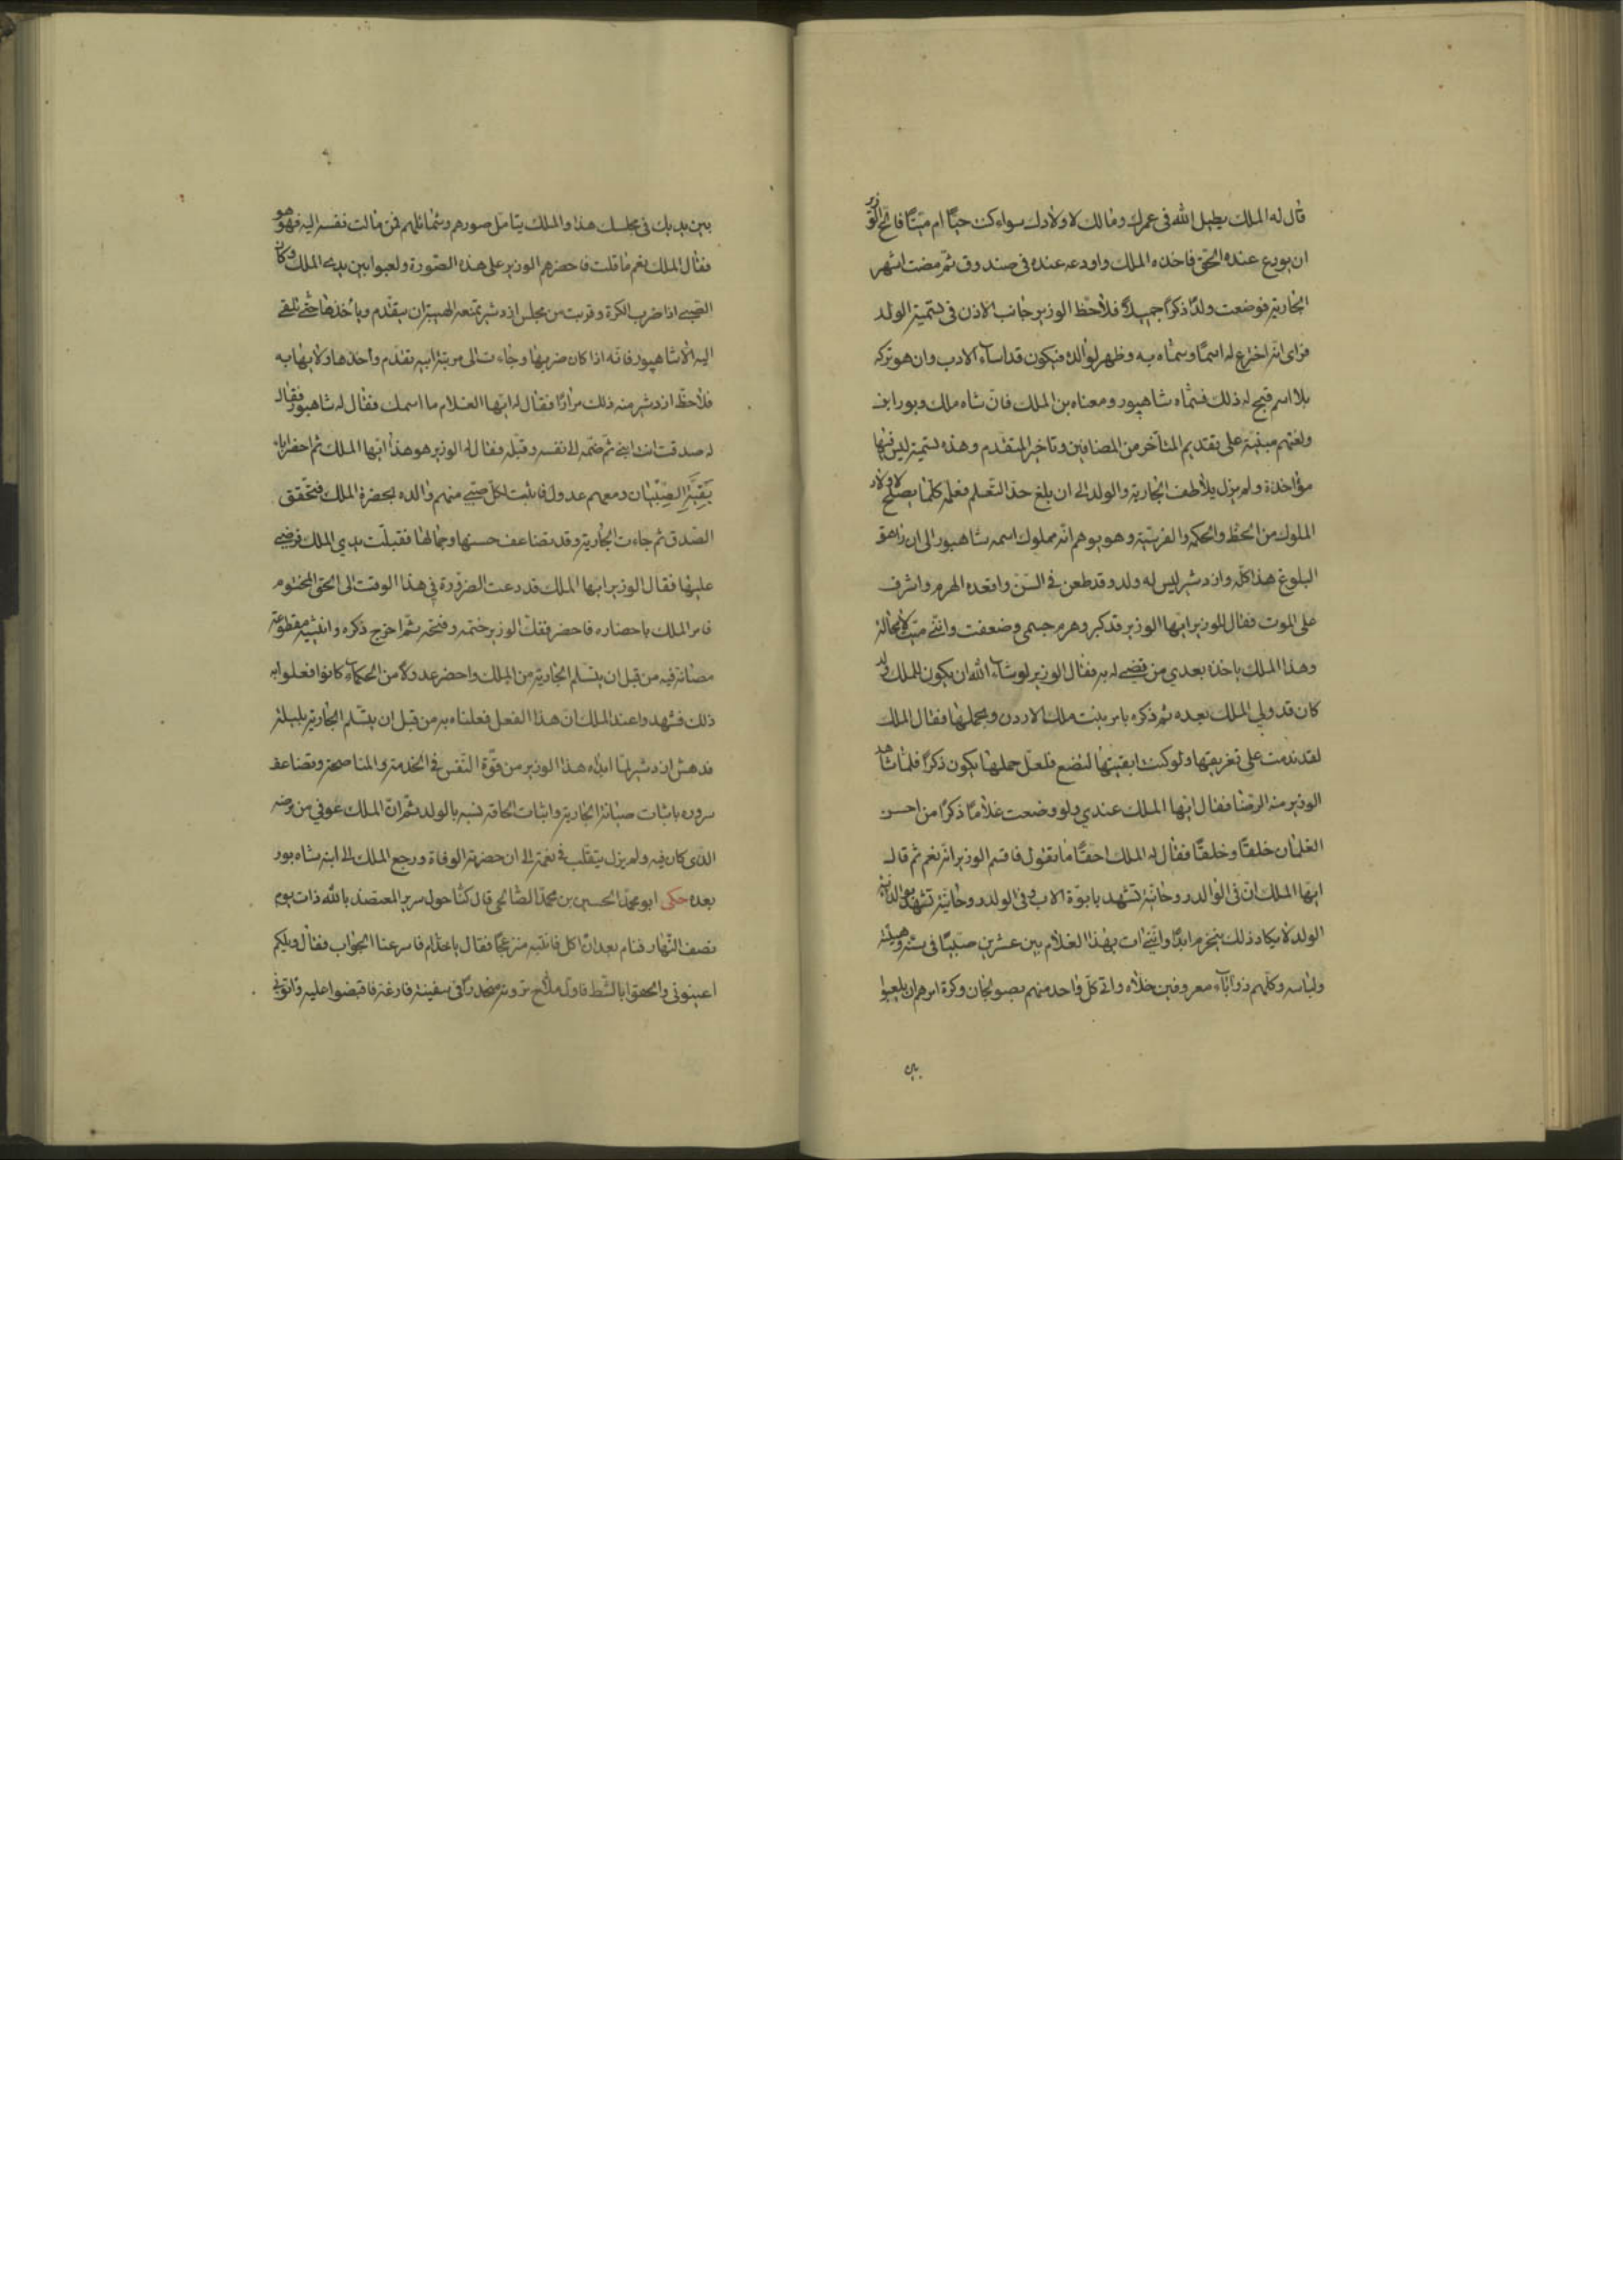 قال له الملك يطيل الله فى عمرك ومالك لاولادك سواء كنت حيًّا ام ميّتًا فالحّ الوزير
ان يودع عنده الحق فاخذه الملك واودعه عنده فى صندوق ثم مضت اشهر
الجارية فوضعت ولدًا ذكرًا جميلًا فلاحظ الوزير جانب الاذن فى تسمية الولد
فراى انه اخترع له اسمًا وسمّاه به وظهر لوالده فيكون قد اساء الادب وان هو تركه
بلا اسم قبيح له ذلك فسمّاه شاهپور ومعناه بن الملك فان شاه ملك وبور ابن
ولغتهم مبنية على تقديم المتأخر من المضافين وتاخير المتقدم وهذه تسمية ليس فيها
مؤاخذة ولم يزل يلاطف الجارية والولد الى ان بلغ حدّ التعلم فعلمه كلما يصلح لاولاد
الملوك من الخط والحكمة والفروسية وهو يوهم انه مملوك اسمه شاهپور الى ان راهق
البلوغ هذا كلّه واردشير ليس له ولد وقد طعن فى السن واقعده الهرم واشرف
على الموت فقال للوزير ايّها الوزير قد كبر وهرم جسمى وضعفت وانّى ميّت لامحالة
وهذا الملك ياخذه بعدى من قضى له به فقال الوزير لو شاء الله ان يكون للملك ولد
كان قد ولي الملك بعده ثم ذكره بامر بنت ملك الاردن وبحملها فقال الملك
لقد ندمت على تغريقها ولو كنت ابقيتها لتضع فلعلّ حملها يكون ذكرًا فلما شاهد
الوزير منه الرضا فقال ايها الملك عندي ولو وضعت غلامًا ذكرًا من احسن
الغلمان خلقًا وخلقًا فقال له الملك احقًّا ما تقول فاقسم الوزير انه نعم ثم قال
ايّها الملك انّ فى الوالد روحانيّة تشهد بابوّة الاب وفى الولد روحانيّة تشهد
الولد لا يكاد ذلك ينخرم ابدًا وانّنى ات بهذا الغلام بين عشرين صبيًّا فى سنّه وهيئته
ولباسه وكلهم ذو آباء معروفين خلاه واتى كلّ واحد منهم بصولجان وكرة امرهم ان يلعبوا
بين
بين يديك فى مجلسك هذا والملك يتامّل صورهم وشمائلهم فمن مالت نفسه اليه فهو هو
فقال الملك نعم ما قلت فاحضرهم الوزير على هذه الصورة ولعبوا بين يدى الملك وكان
الصبى اذا ضرب الكرة وقربت من مجلس اردشير تمنعه الهيبة ان يتقدّم وياخذها حتى
اليه الا شاهپور فانه اذا كان ضربها وجاءت الى مرتبة ابيه تقدّم واخذها ولا يهابه
فلاحظ اردشير منه ذلك مرارًا فقال له ايّها الغلام ما اسمك فقال له شاهپور فقال
له صدقت انت ابنى ثم ضمّه الى نفسه وقبّله فقال له الوزير هو هذا ايّها الملك ثم احضر اباء
بقية الصبيان ومعهم عدول فاثبت لكلّ صبى منهم والده بحضرة الملك فتحقق
الصدق ثم جاءت الجارية وقد تضاعف حسنها وجمالها فقبلت يدي الملك فرضى
عليها فقال الوزير ايها الملك قد دعت الضرورة فى هذا الوقت الى الحق المختوم
فامر الملك باحضاره فاحضر ففكّ الوزير ختمه وفتحه ثم اخرج ذكره وانثييه مقطوعة
مصانة فيه من قبل ان يتسلم الجارية من الملك واحضر عدولا من الحكماء كانوا فعلوا به
ذلك فشهدوا عند الملك انّ هذا الفعل فعلناه به من قبل ان يتسلم الجارية بليلة
فدهش اردشير لما ابداه هذا الوزير من قوّة النفس فى الخدمة والمناصحة وتضاعف
سروره باثبات صيانة الجارية واثبات الحاقه نسبه بالولد ثم ان الملك عوفي من مرضه
الذى كان فيه ولم يزل يتقلب فى نعمة الى ان حضرته الوفاة ورجع الملك الى ابنه شاه بور
بعده حكى ابو محمد الحسين بن محمد الصالحى قال كنّا حول سرير المعتضد بالله ذات يوم
نصف النهار فنام بعد ان اكل فانتبه منزعجًا فقال ياخدّام فاسرعنا الجواب فقال ويلكم
اعينونى والحقوا بالشط فاول ملّاح ترونه منحدرًا فى سفينة فارغة فاقبضوا عليه واتونى